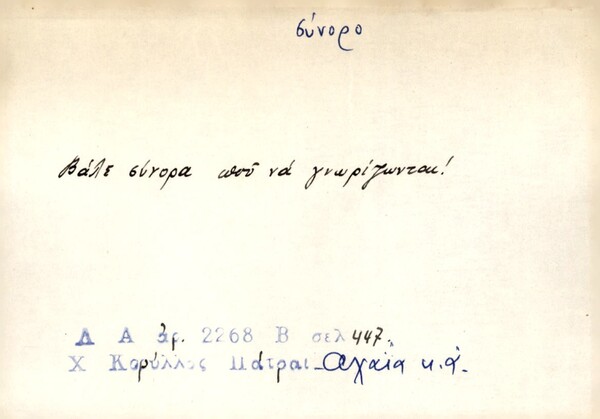 σύνορο
Βάλε σύνορα ποῦ νά γνωρίζωνται!
Λ Α ἀρ. 2268 Β σελ 447.
Χ Κορύλλος Πάτραι - Ἀχαΐα κ.ἀ.